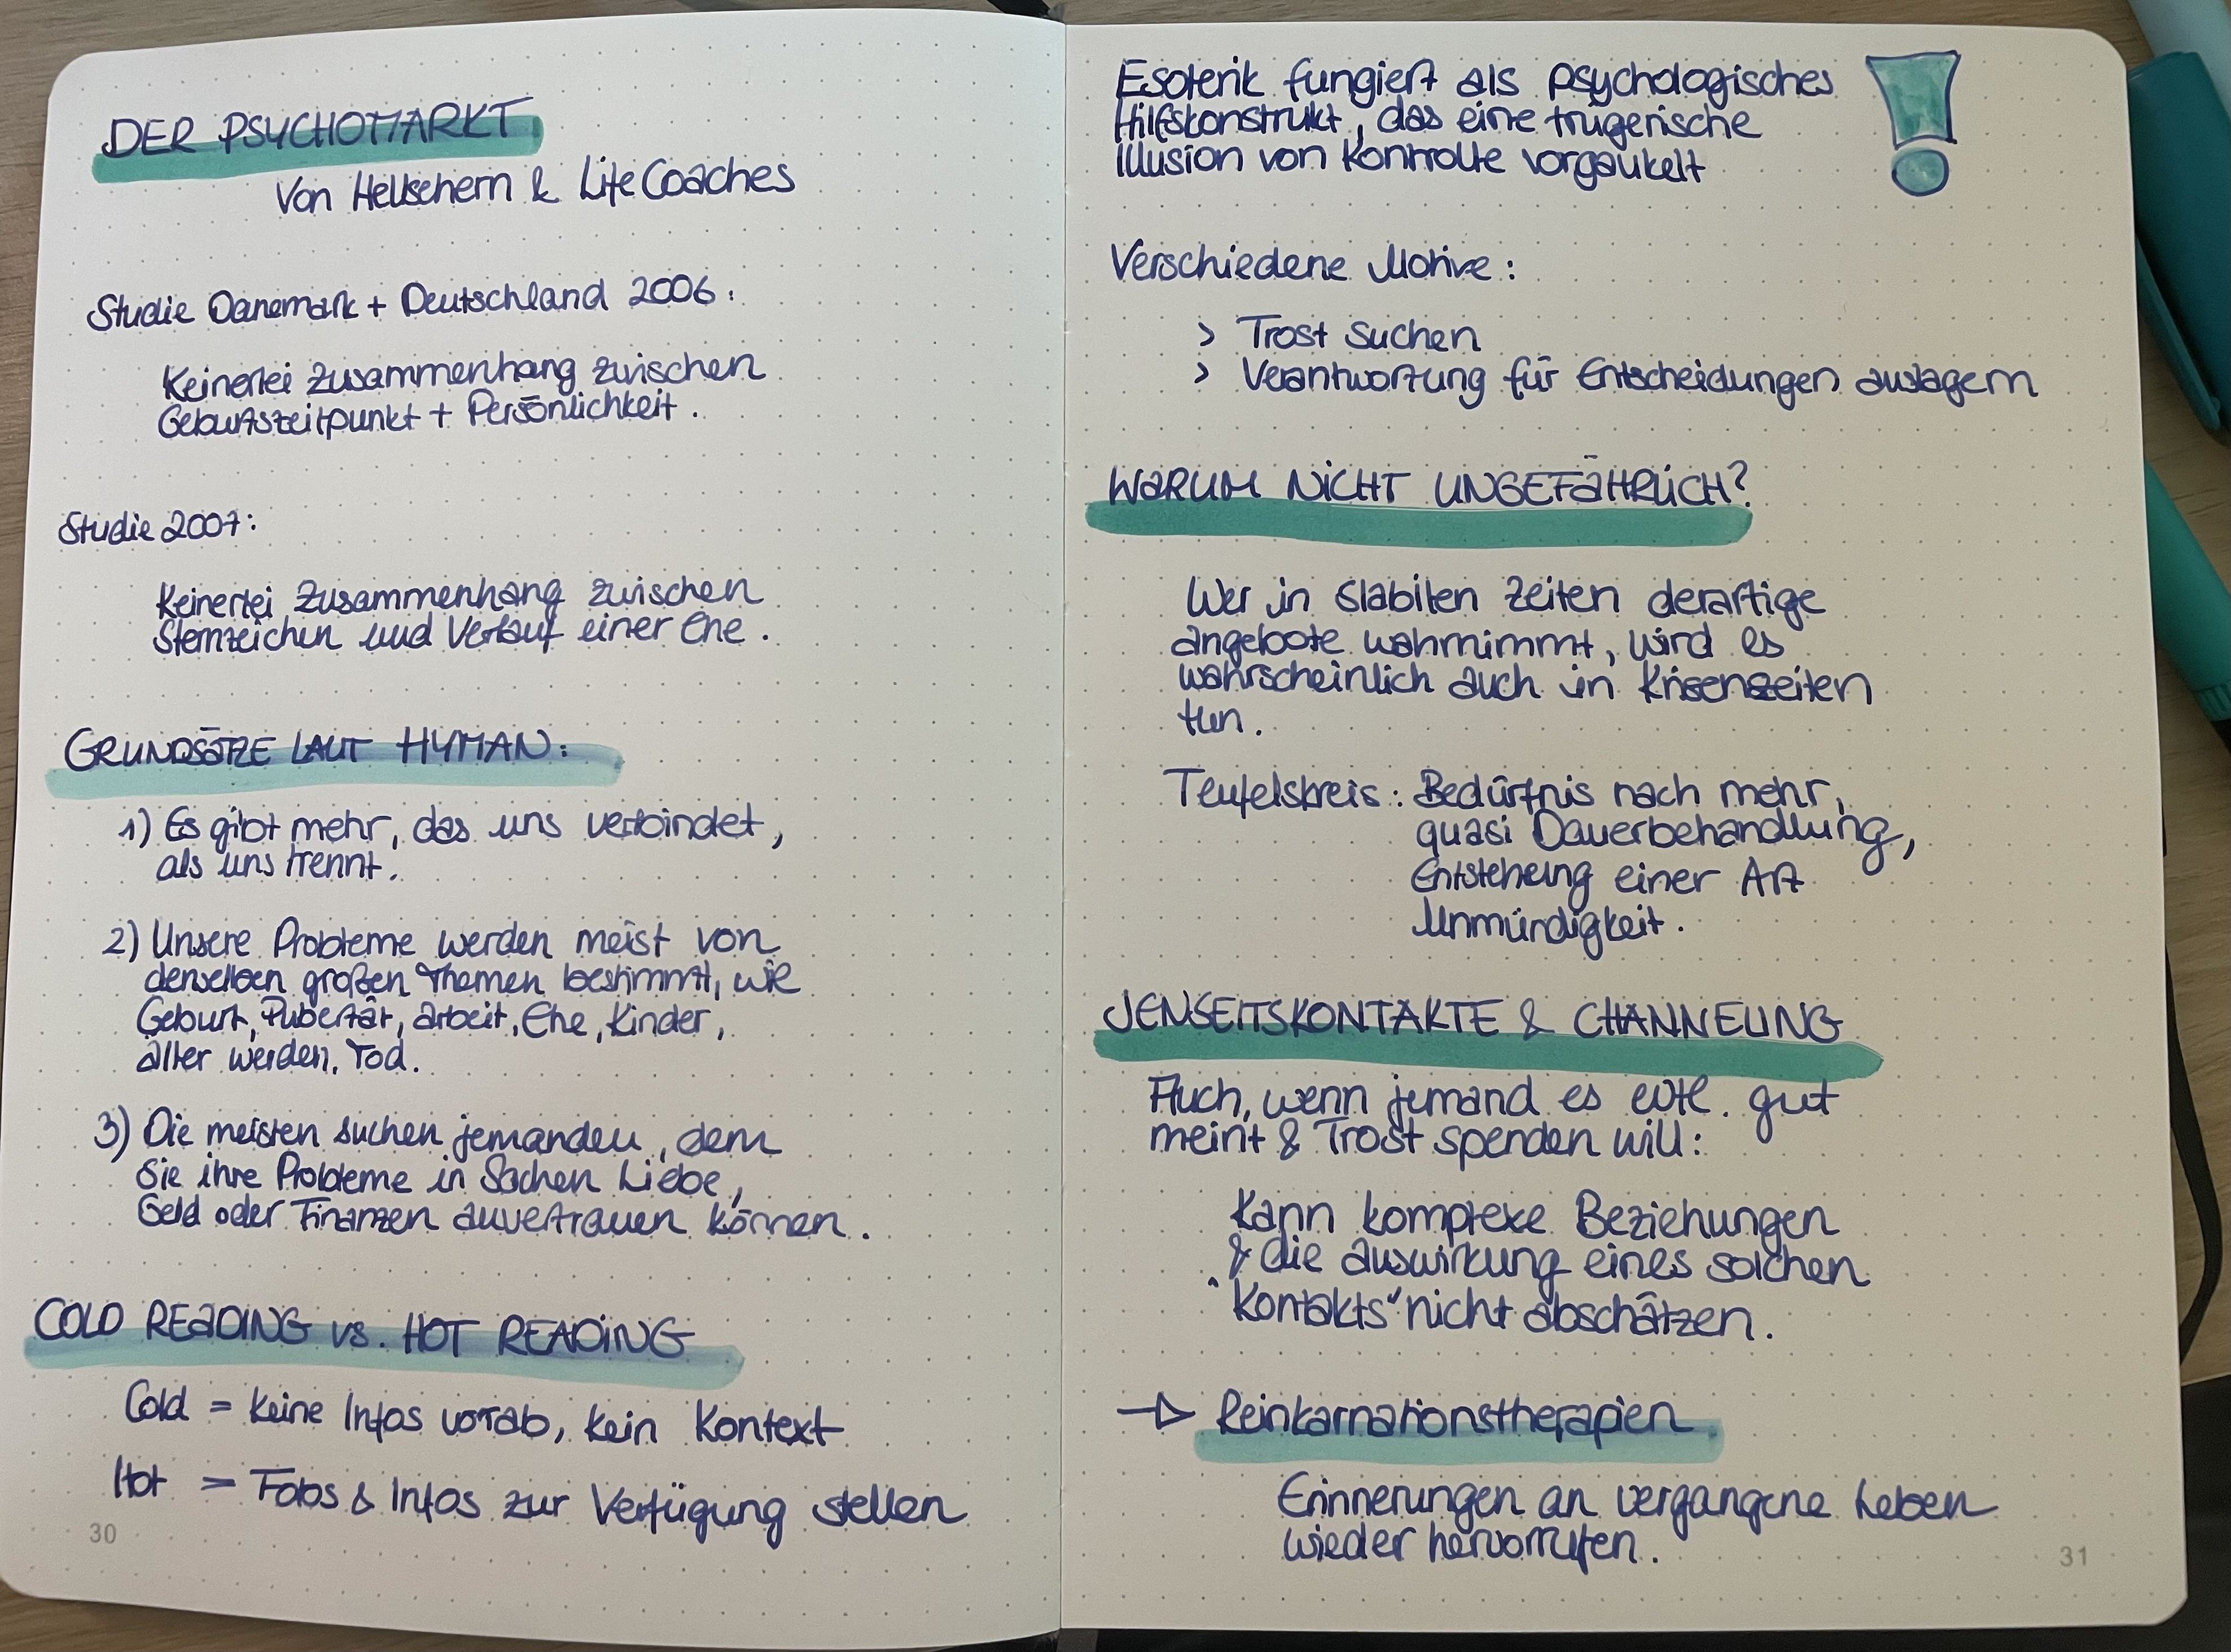 DER PSYCHOMARKT
Von Hellsehern & LifeCoaches
Studie Dänemark + Deutschland 2006:
Keinerlei Zusammenhang zwischen
Geburtszeitpunkt + Persönlichkeit.
Studie 2007:
Keinerlei Zusammenhang zwischen
Sternzeichen und Verlauf einer Ehe.
GRUNDSÄTZE LAUT HYMAN:
1) Es gibt mehr, das uns verbindet,
als uns trennt.
2) Unsere Probleme werden meist von
denselben großen Themen bestimmt, wie
Geburt, Pubertät, Arbeit, Ehe, Kinder,
älter werden, Tod.
3) Die meisten suchen jemanden, dem
Sie ihre Probleme in Sachen Liebe,
Geld oder Finanzen anvertrauen können.
COLD READING vs. HOT READING
Cold = Keine Infos vorab, kein Kontext
Hot = Fotos & Infos zur Verfügung stellen
30
Esoterik fungiert als psychologisches
Hilfskonstrukt, das eine trügerische
Illusion von Kontrolle vorgaukelt
!
Verschiedene Motive:
> Trost suchen
> Verantwortung für Entscheidungen auslagern
WARUM NICHT UNGEFÄHRLICH?
Wer in stabilen Zeiten derartige
Angebote wahrnimmt, wird es
wahrscheinlich auch in Krisenzeiten
tun.
Teufelskreis: Bedürfnis nach mehr,
quasi Dauerbehandlung,
Entstehung einer Art
Unmündigkeit.
JENSEITSKONTAKTE & CHANNELING
Auch, wenn jemand es evtl. gut
meint & Trost spenden will:
Kann komplexe Beziehungen
& die Auswirkung eines solchen
"Kontakts" nicht abschätzen.
→ Reinkarnationstherapien
Erinnerungen an vergangene Leben
wieder hervorrufen.
31